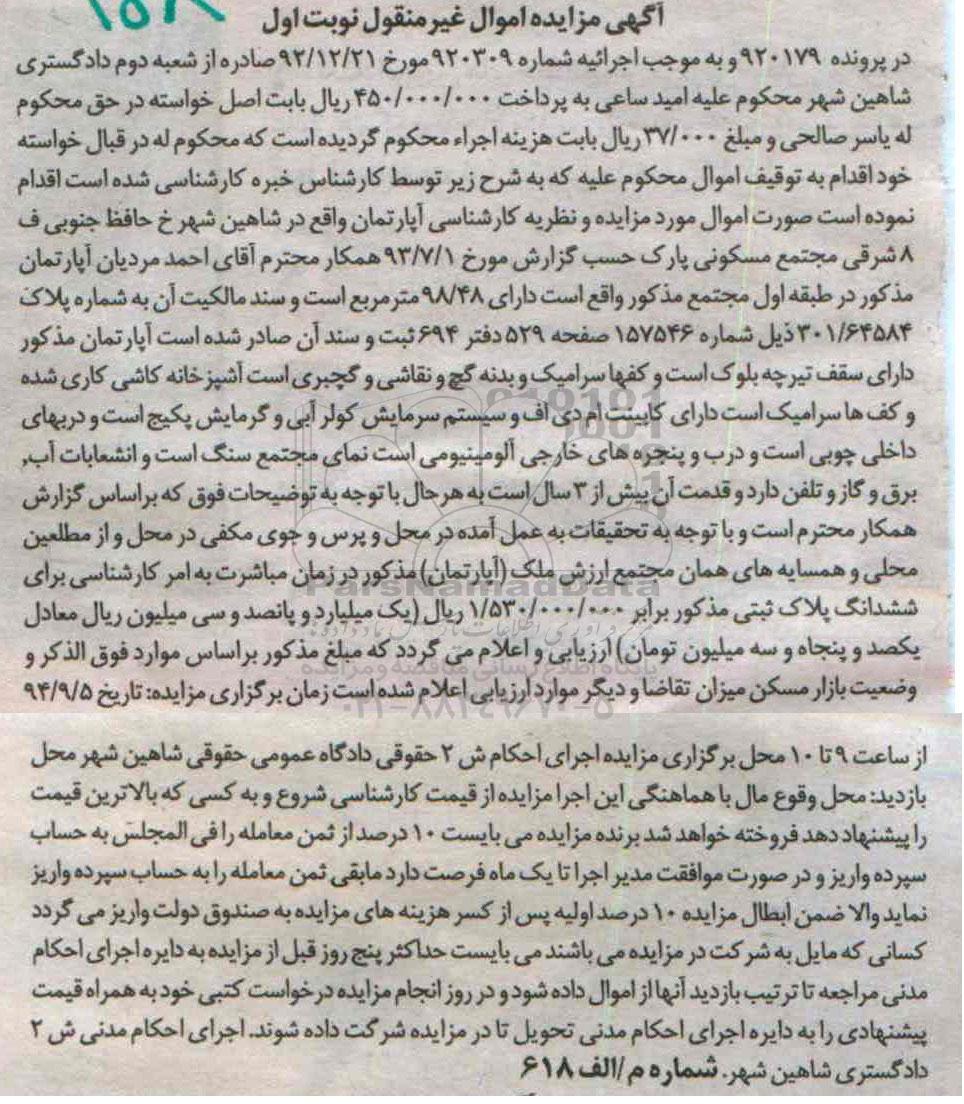 ۱۵۸
آگهی مزایده اموال غیر منقول نوبت اول
در پرونده ۹۲۰۱۷۹ و به موجب اجرائیه شماره ۹۲۰۳۰۹ مورخ ۹۲/۱۲/۲۱ صادره از شعبه دوم دادگستری
شاهین شهر محکوم علیه امید ساعی به پرداخت ۴۵۰/۰۰۰/۰۰۰ ریال بابت اصل خواسته در حق محکوم
له یاسر صالحی و مبلغ ۳۷/۰۰۰ ریال بابت هزینه اجراء محکوم گردیده است که محکوم له در قبال خواسته
خود اقدام به توقیف اموال محکوم علیه که به شرح زیر توسط کارشناس خبره کارشناسی شده است اقدام
نموده است صورت اموال مورد مزایده و نظریه کارشناسی آپارتمان واقع در شاهین شهر خ حافظ جنوبی ف
۸ شرقی مجتمع مسکونی پارک حسب گزارش مورخ ۹۳/۷/۱ همکار محترم آقای احمد مردیان آپارتمان
مذکور در طبقه اول مجتمع مذکور واقع است دارای ۹۸/۴۸ مترمربع است و سند مالکیت آن به شماره پلاک
۳۰۱/۶۴۵۸۴ ذیل شماره ۱۵۷۵۴۶ صفحه ۵۲۹ دفتر ۶۹۴ ثبت و سند آن صادر شده است آپارتمان مذکور
دارای سقف تیرچه بلوک است و کفها سرامیک و بدنه گچ و نقاشی و گچبری است آشپزخانه کاشی کاری شده
و کف ها سرامیک است دارای کابینت ام دی اف و سیستم سرمایش کولر آبی و گرمایش پکیج است و دربهای
داخلی چوبی است و درب و پنجره های خارجی آلومینیومی است نمای مجتمع سنگ است و انشعابات آب,
برق و گاز و تلفن دارد و قدمت آن بیش از ۳ سال است به هر حال با توجه به توضیحات فوق که براساس گزارش
همکار محترم است و با توجه به تحقیقات به عمل آمده در محل و پرس و جوی مکفی در محل و از مطلعین
محلی و همسایه های همان مجتمع ارزش ملک (آپارتمان) مذکور در زمان مباشرت به امر کارشناسی برای
ششدانگ پلاک ثبتی مذکور برابر ۱/۵۳۰/۰۰۰/۰۰۰ ریال (یک میلیارد و پانصد و سی میلیون ریال معادل
یکصد و پنجاه و سه میلیون تومان) ارزیابی و اعلام می گردد که مبلغ مذکور براساس موارد فوق الذکر و
وضعیت بازار مسکن میزان تقاضا و دیگر موارد ارزیابی اعلام شده است زمان برگزاری مزایده: تاریخ ۹۴/۹/۵
از ساعت ۹ تا ۱۰ محل برگزاری مزایده اجرای احکام ش ۲ حقوقی دادگاه عمومی حقوقی شاهین شهر محل
بازدید: محل وقوع مال با هماهنگی این اجرا مزایده از قیمت کارشناسی شروع و به کسی که بالاترین قیمت
را پیشنهاد دهد فروخته خواهد شد برنده مزایده می بایست ۱۰ درصد از ثمن معامله را فی المجلس به حساب
سپرده واریز و در صورت موافقت مدیر اجرا تا یک ماه فرصت دارد مابقی ثمن معامله را به حساب سپرده واریز
نماید والا ضمن ابطال مزایده ۱۰ درصد اولیه پس از کسر هزینه های مزایده به صندوق دولت واریز می گردد
کسانی که مایل به شرکت در مزایده می باشند می بایست حداکثر پنج روز قبل از مزایده به دایره اجرای احکام
مدنی مراجعه تا ترتیب بازدید آنها از اموال داده شود و در روز انجام مزایده درخواست کتبی خود به همراه قیمت
پیشنهادی را به دایره اجرای احکام مدنی تحویل تا در مزایده شرکت داده شوند. اجرای احکام مدنی ش ۲
دادگستری شاهین شهر. شماره م/الف ۶۱۸
ParsNamadData
پایگاه اطلاع رسانی مناقصه و مزایده
۰۲۱-۸۸۳۴۹۶۷۰-۵